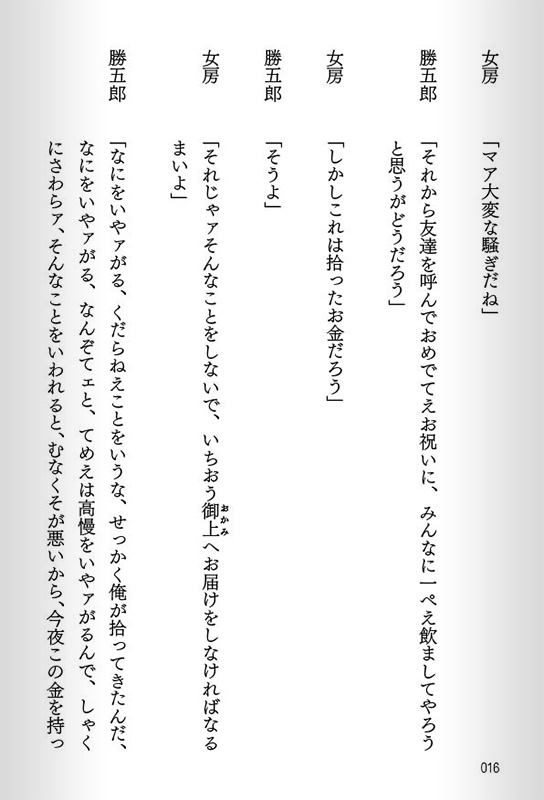 女房　「マア大変な騒ぎだね」
勝五郎　「それから友達を呼んでおめでてえお祝いに、みんなに一ぺえ飲ましてやろう
と思うがどうだろう」
女房　「しかしこれは拾ったお金だろう」
勝五郎　「そうよ」
女房　「それじゃァそんなことをしないで、いちおう御上へお届けをしなければなる
おかみ
まいよ」
勝五郎　「なにをいやァがる、くだらねえことをいうな、せっかく俺が拾ってきたんだ、
なにをいやァがる、なんぞてェと、てめえは高慢をいやァがるんで、しゃく
にさわらァ、そんなことをいわれると、むなくそが悪いから、今夜この金を持っ
016